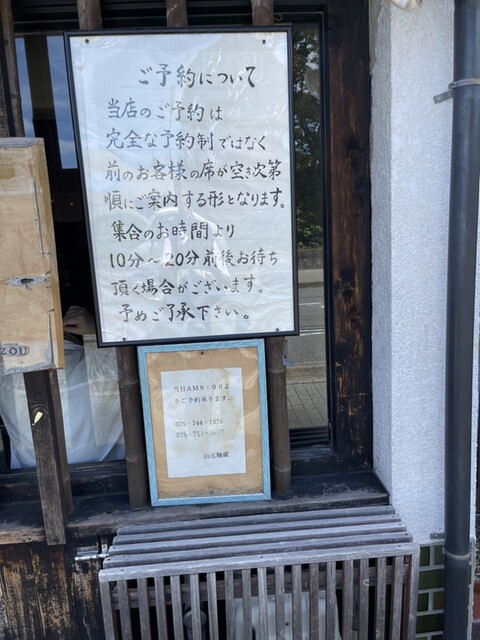 ご予約について
当店のご予約は
完全な予約制ではなく
前のお客様の席が空き次第
順にご案内する形となります。
集合のお時間より
10分〜20分前後お待ち
頂く場合がございます。
予めご了承下さい。
ZOU
当日AM9:00よ
りご予約承ります。
075-744-1876
075-751-0677
山元麺蔵